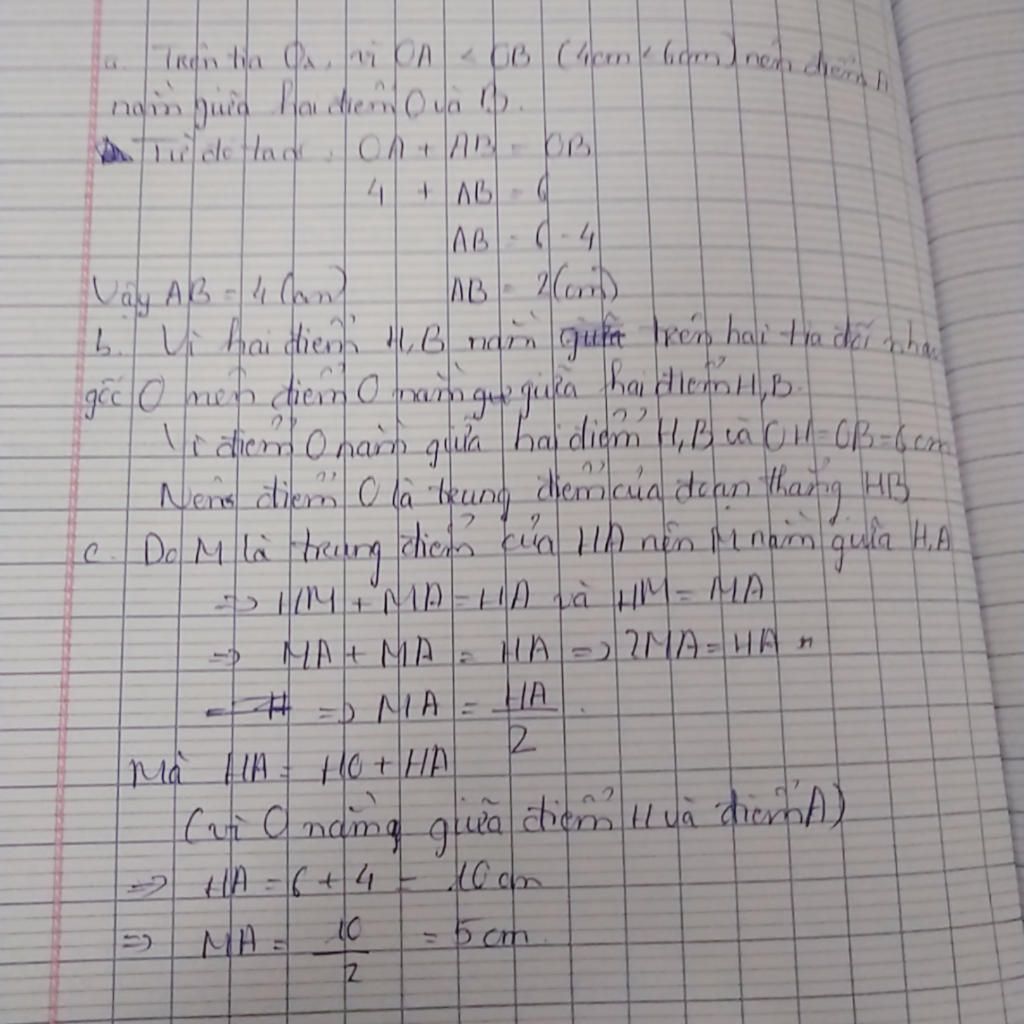 a. Trên tia Ox, vì OA < OB (4cm < 6cm) nên điểm A
nằm giữa hai điểm O và B.
Từ đó ta có: OA + AB = OB
4 + AB = 6
AB = 6 - 4
Vậy AB = 4 (cm) AB = 2 (cm)
b. Vì hai điểm H, B nằm giữa trên hai tia đối nhau
gốc O nên điểm O nằm giữa hai điểm H, B.
Vì điểm O nằm giữa hai điểm H, B và OH = OB = 6 cm
Nên điểm O là trung điểm của đoạn thẳng HB
c. Do M là trung điểm của HA nên M nằm giữa H, A
=> HM + MA = HA và HM = MA
=> MA + MA = HA => 2MA = HA
=> MA = HA / 2
Mà HA = HO + HA
(vì O nằm giữa điểm H và điểm A)
=> HA = 6 + 4 = 10 cm
=> MA = 10 / 2 = 5 cm